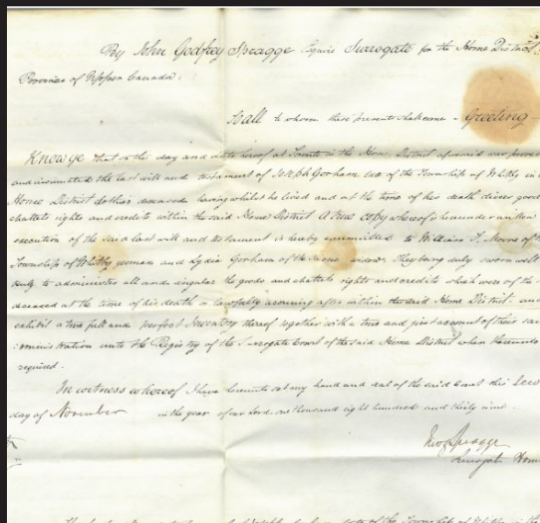 By John Godfrey Spragge Esquire Surrogate for the Home District
Province of Upper Canada.
To all to whom these presents shall come - Greeting -
Know ye that on the day and date hereof at Toronto in the Home District aforesaid was proved
and insinuated the last will and testament of Joseph Gorham late of the Township of Whitby in
Home District deceased having whilst he lived and at the time of his death divers goods
chattels rights and credits within the said Home District A true copy whereof is hereunder written
execution of the said last will and testament is hereby committed to William F. Moore of the
Township of Whitby yeoman and Lydia Gorham of the same widow They being duly sworn well
truly to administer all and singular the goods and chattels rights and credits which were of the
deceased at the time of his death or lawfully accruing after within the said Home District: and
exhibit a true full and perfect Inventory thereof together with a true and just account of their
administration unto the Registry of the Surrogate Court of the said Home District when thereunto
required.
In witness whereof I have hereunto set my hand and seal of the said Court this
day of November in the year of our Lord one thousand eight hundred and thirty nine.
Jno G Spragge
Surrogate Home
of the Township of Whitby in the